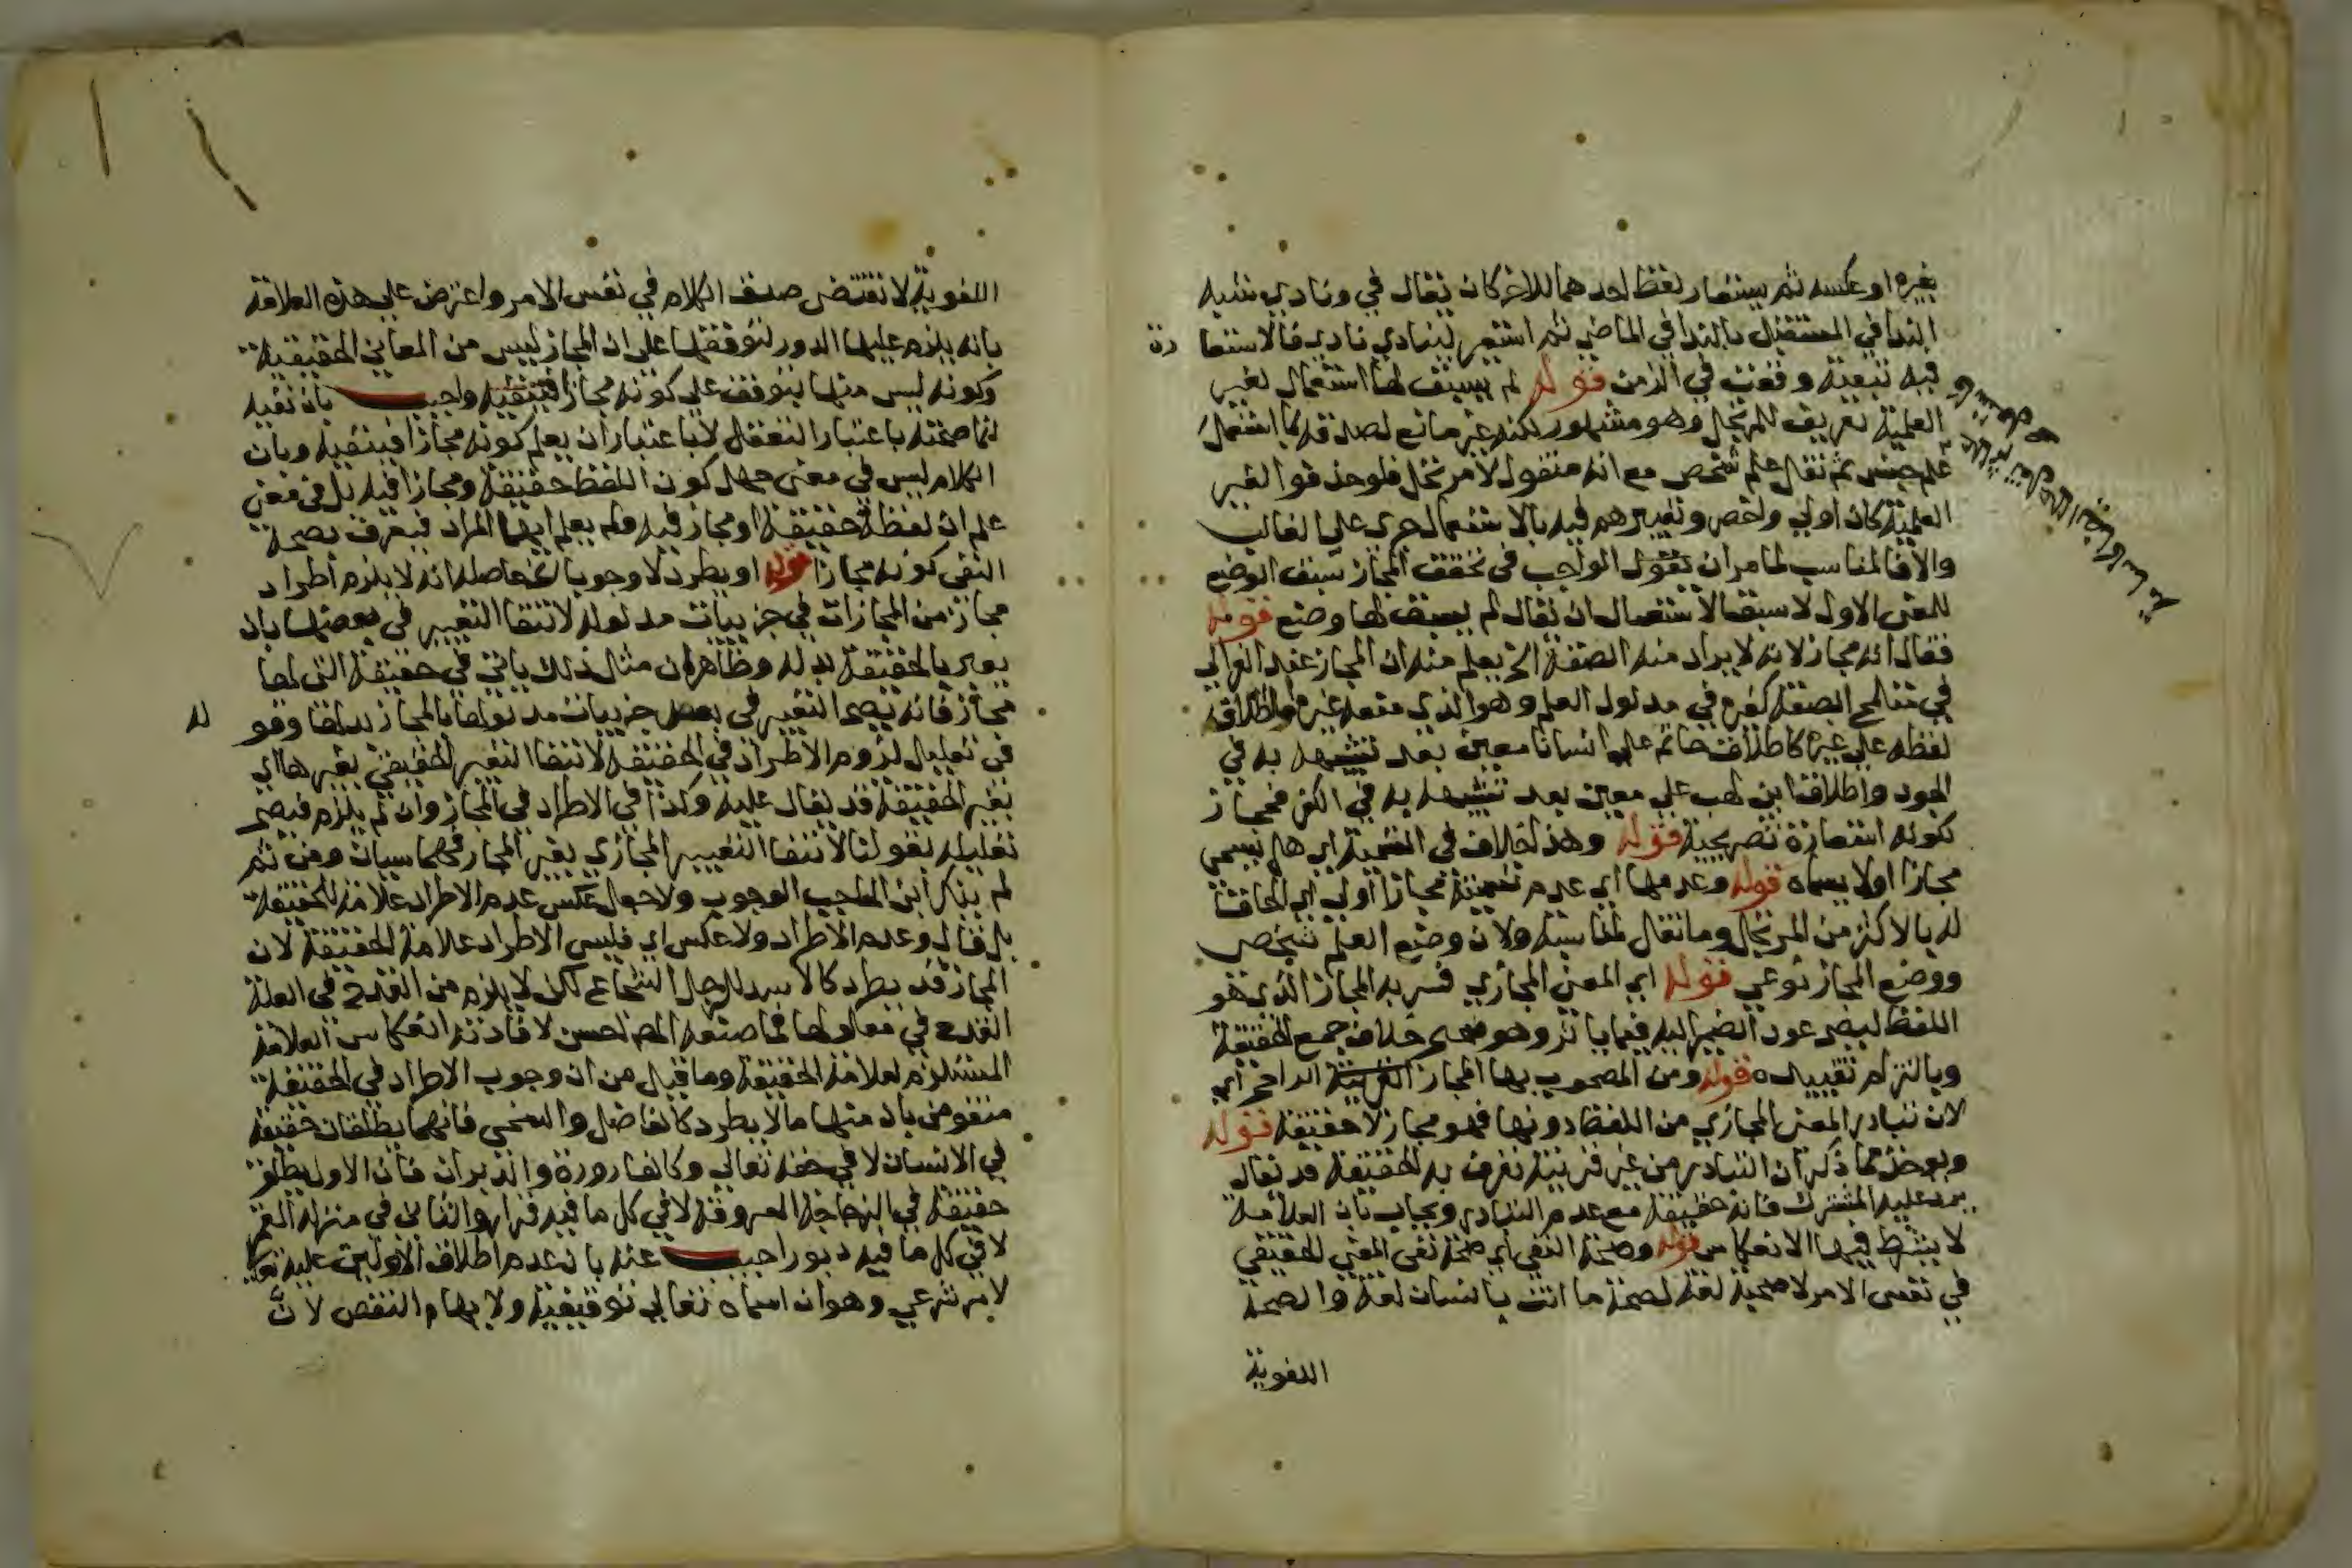 بغيره او عكسه ثم يستعار لفظ احدهما للاخر كان يقال في ونادي شبه
الندا في المستقبل بالندا في الماضي ثم استعير لينادي نادي فالاستعا رة
فيه تبعية وقعت في الزمن قوله لم يسبق لها استعمال لغير
العلمية تعريف للمرتجل وهو مشهور لكنه غير مانع لصدقه بما استعمل
علم جنس ثم نقل علم شخص مع انه منقول لا مرتجل فلو حذفوا لغير
العلمية كان اولي واخصر وتعبيرهم فيه بالاستعمال جري علي الغالب
والا فالمناسب لما مر ان يقول الواجب في تحقق المجاز سبق الوضع
للمعنى الاول لا سبق الاستعمال ان يقال لم يسبق لها وضع قوله
فقال انه مجاز لانه لا يراد منه الصفة الخ يعلم منه ان المجاز عند الغزالي
في متلمح الصفة كغيره في مدلول العلم وهو الذي منعه غيره واطلاق
لفظه علي غيره كاطلاق حاتم علي انسان معين بعد تشبيهه به في
الجود واطلاق ابن لهب علي معين بعد تشبيهه به في الكفر فمجاز
لكونه استعارة تصريحية قوله وهذا خلاف في التسمية اي هل يسمي
مجازا اولا يسماه قوله وعدمها اي عدم تسميته مجازا اولي اي الحاقا
له بالاكثر من المرتجل وما نقل لمناسبة ولان وضع العلم شخصي
ووضع المجاز نوعي قوله اي المعنى المجازي فسر به المجاز الذي هو
اللفظ ليصح عود الضمير اليه فيما ياتي وهو صحيح خلاف جمع الحقيقة
وبالتزام تقييده قوله ومن المصحوب بها المجاز الراجح اي
لان تبادر المعنى المجازي من اللفظ دونها فهو مجاز لا حقيقة قوله
ويؤخذ مما ذكر ان التبادر من غير قرينة تعرف به الحقيقة قد يقال
يرد عليه المشترك فانه حقيقة مع عدم التبادر ويجاب بان العلامة
لا يشترط فيها الانعكاس قوله وصحة النفي اي صحة نفي المعنى الحقيقي
في نفس الامر لا صحته لغة لصحة ما انت بانسان لغة والصحة
اللغوية
اللغوية لا تقتضي صدق الكلام في نفس الامر واعترض علي هذه العلاقة
بانه يلزم عليها الدور لتوقفها علي ان المجاز ليس من المعاني الحقيقية
وكونه ليس منها يتوقف علي كونه مجازا واجيب بان نفيه
انما صحته باعتبار التعقل لا باعتبار ان يعلم كونه مجازا فينفيه وبان
الكلام ليس في معنى جهل كون اللفظ حقيقة ومجازا فيه بل في معنى
علم ان لفظه حقيقة او مجاز فيه ولم يعلم ايهما المراد فيعرف بصحة
النفي كونه مجازا قوله او يطرد لا وجوبا حاصله انه لا يلزم اطراد
مجاز من المجازات في جزئيات مدلوله لانتفا التعبير في بعضها بان
يعبر بالحقيقة بدله وظاهر ان مثل ذلك ياتي في حقيقة التي لها
مجاز فانه يصح التعبير في بعض جزئيات مدلولها بالمجاز بدلها وقو له
في تعليل لزوم الاطراد في الحقيقة لانتفا التعبير الحقيقي بغيرها اي
بغير الحقيقة قد يقال عليه وكذا في الاطراد في المجاز وان لم يلزم فيصح
تعليله بقولنا لانتفا التعبير المجازي بغير المجاز فهما سيان ومن ثم
لم يذكر ابن الحاجب الوجوب ولا جعل عكس عدم الاطراد علامة للحقيقة
بل قال وعدم الاطراد ولا عكس اي فليس الاطراد علامة الحقيقة لان
المجاز قد يطرد كالاسد للرجل الشجاع لكن لا يلزم من القدح في العلة
القدح في معلولها فما صنعه المص احسن لافادته انعكاس العلامة
المستلزم لعلامة الحقيقة وما قيل من ان وجوب الاطراد في الحقيقة
منقوض بان منها ما لا يطرد كالفاضل والسخي فانهما يطلقان حقيقة
في الانسان لا في حقه تعالي وكالقارورة والدبران فان الاول يطلق
حقيقة في الزجاجة المعروفة لا في كل ما فيه قرار والثاني في منزلة القمر
لا في كل ما فيه دبور اجيب عنه بان عدم اطلاق الاولين عليه تعالي
لامر شرعي وهو ان اسماه تعالي توقيفية ولايهام النقص لان